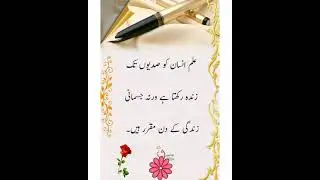 علم انسان کو صدیوں تک
زندہ رکھتا ہے ورنہ جسمانی
زندگی کے دن مقرر ہیں۔